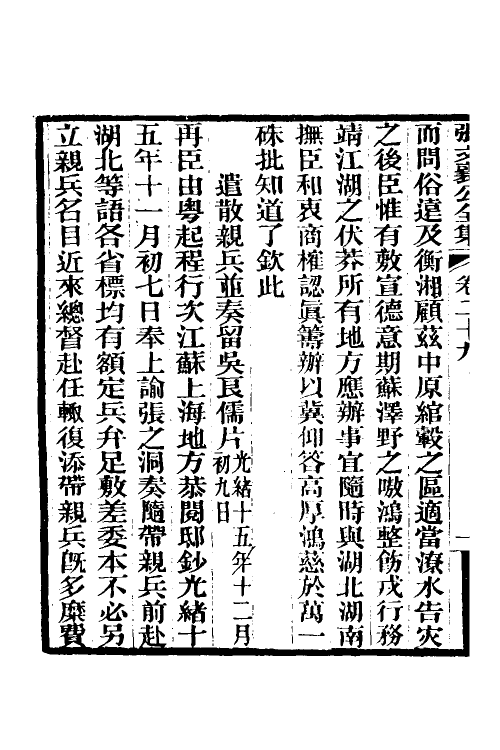 張文襄公全集 卷二十九 一
而問俗遠及衡湘顧茲中原綰轂之區適當潦水告灾
之後臣惟有敷宣德意期蘇澤野之嗷鴻整飭戎行務
靖江湖之伏莽所有地方應辦事宜隨時與湖北湖南
撫臣和衷商榷認眞籌辦以冀仰答高厚鴻慈於萬一
硃批知道了欽此
遣散親兵並奏留吳良儒片光緒十五年十二月初九日
再臣由粵起程行次江蘇上海地方恭閱邸鈔光緒十
五年十一月初七日奉上諭張之洞奏隨帶親兵前赴
湖北等語各省標均有額定兵弁足敷差委本不必另
立親兵名目近來總督赴任輒復添帶親兵旣多糜費